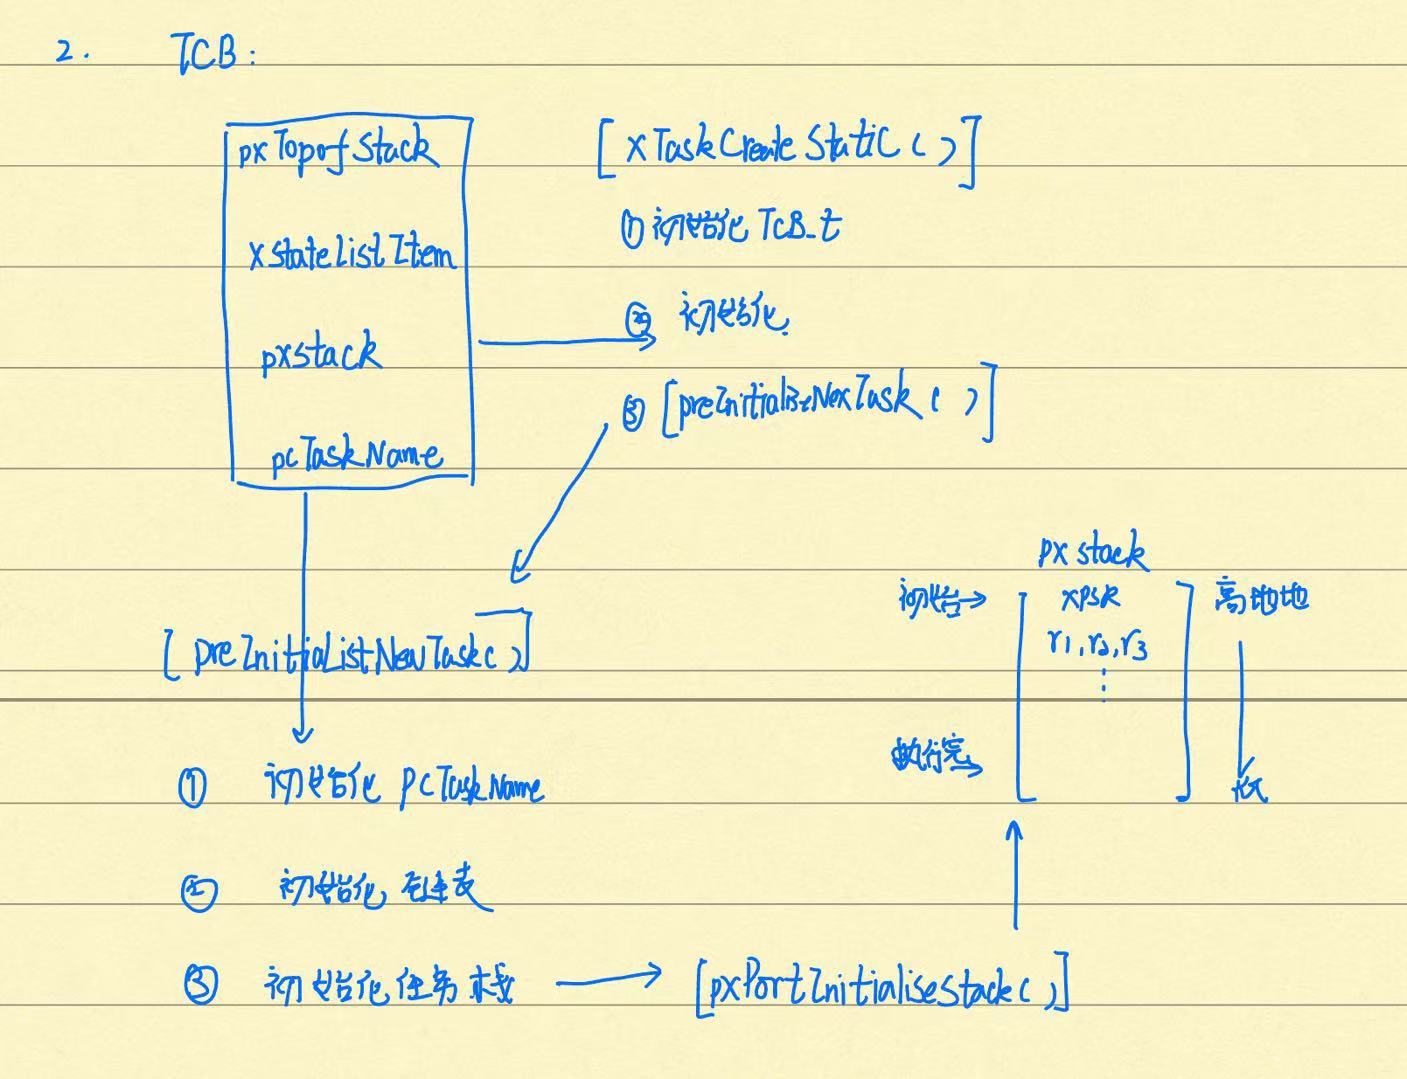 2. TCB:
pxTopofStack
xstatelistItem
pxstack
pcTaskName
[xTaskCreateStatic()]
① 初始化 TCB_t
② 初始化
③ [preInitialiseNexTask()]
[preInitialistNewTask()]
① 初始化 pcTaskName
② 初始化
③ 初始化任务栈 → [pxPortInitialisestack()]
px stack
初始→ xPSR 高地地
r1,r2,r3
⋮
执行完→ 低